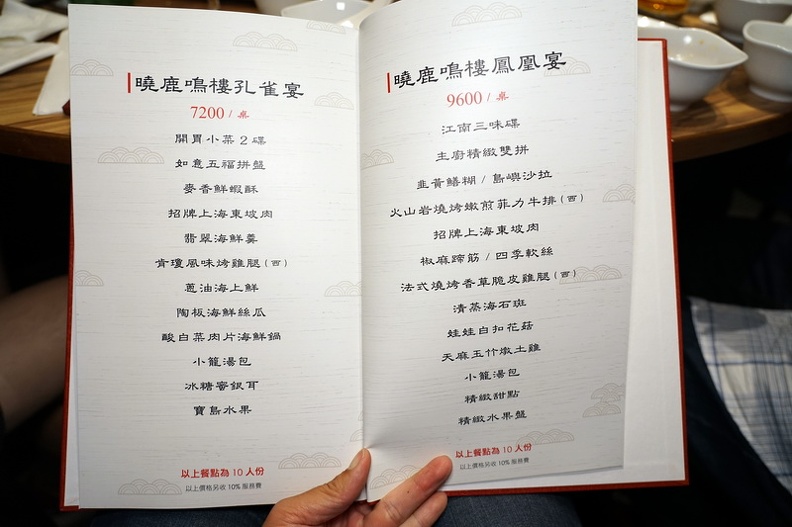 曉鹿鳴樓孔雀宴
7200 / 桌
開胃小菜 2 碟
如意五福拼盤
麥香鮮蝦酥
招牌上海東坡肉
翡翠海鮮羹
肯瓊風味烤雞腿(西)
蔥油海上鮮
陶板海鮮絲瓜
酸白菜肉片海鮮鍋
小籠湯包
冰糖蜜銀耳
寶島水果
以上餐點為 10 人份
以上價格另收 10% 服務費
曉鹿鳴樓鳳凰宴
9600 / 桌
江南三味碟
主廚精緻雙拼
韭黃鱔糊 / 島嶼沙拉
火山岩燒烤嫩煎菲力牛排(西)
招牌上海東坡肉
椒麻蹄筋 / 四季軟絲
法式燒烤香草脆皮雞腿(西)
清蒸海石斑
娃娃白扣花菇
天麻玉竹燉土雞
小籠湯包
精緻甜點
精緻水果盤
以上餐點為 10 人份
以上價格另收 10% 服務費